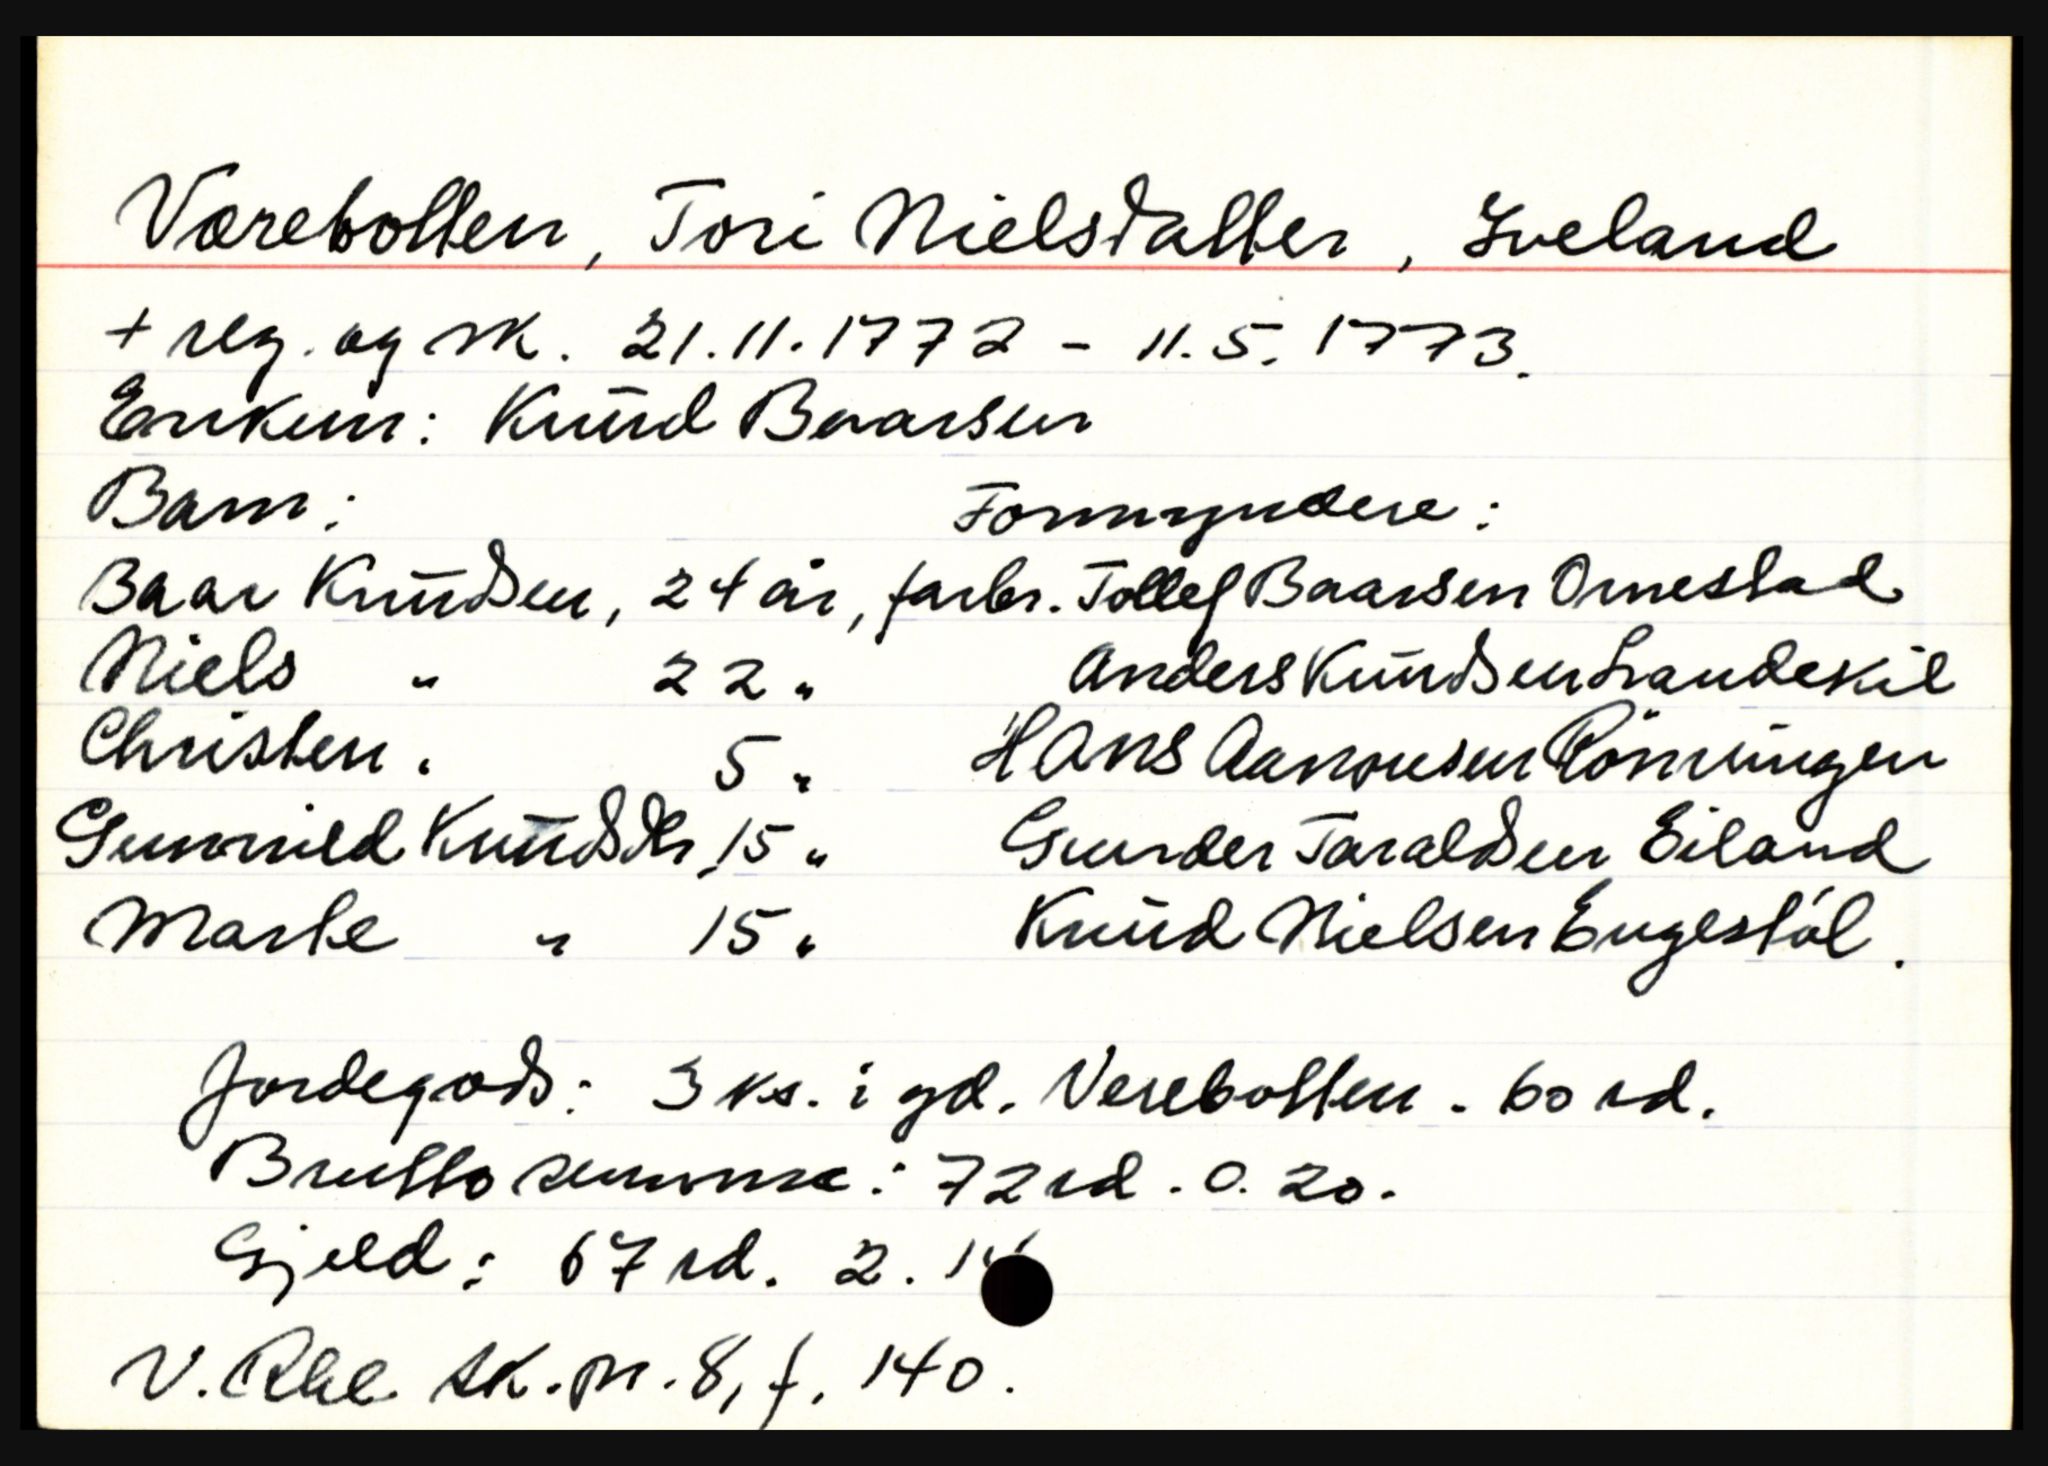 Værebotten, Tori Nielsdatter, Iveland
+ reg. og sk. 21.11.1772 - 11.5.1773.
Enkem: Knud Baarsen
Barn: Formyndere:
Baar Knudsen, 24 år, farbr. Tollef Baarsen Omestad
Niels " 22 " Anders Knudsen Landeskil
Christen " 5 " Hans Aanonsen Rönningen
Gunnild Knudsdtr, 15 " Gunder Taraldsen Eiland
Marte " 15 " Knud Nielsen Engestöl.
Jordegods: 3 ks. i gd. Verebotten. 60 rd.
Brutto summa: 72 rd. 0. 20.
Gjeld: 67 rd. 2.
V. Rbl. sk. pr. 8, f. 140.